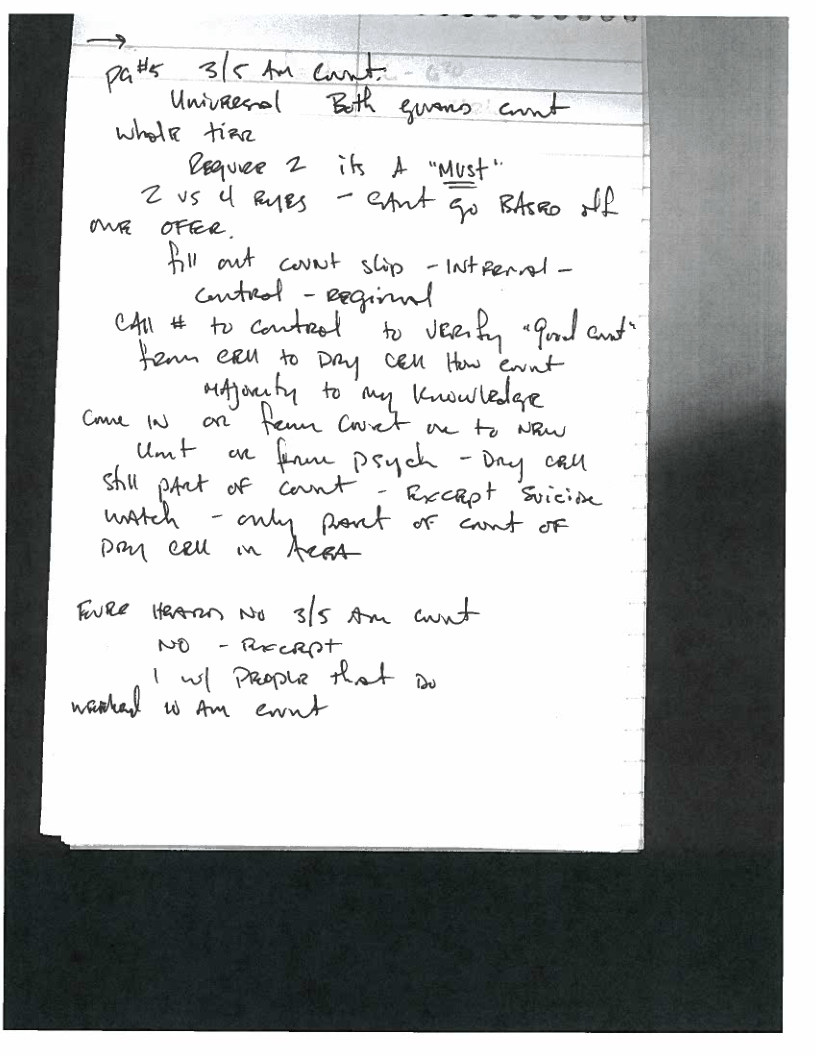 →
pg #5 3/5 AM Count.
Universal Both guards count
whole tier
Require 2 its A "Must"
2 vs 4 Eyes - CAnt go BASED off
one OFFER.
fill out count slip - Internal -
Control - Regional
CAll # to control to verify "Good Count"
from cell to Dry cell How count
MAjority to my Knowledge
Come IN or from Court or to New
Unit or from psych - Dry cell
still pArt of count - Except Suicide
watch - only part of count of
Dry cell in AreA
Ever HeArd No 3/5 Am count
NO - Except
1 w/ People that Do
worked 10 Am count